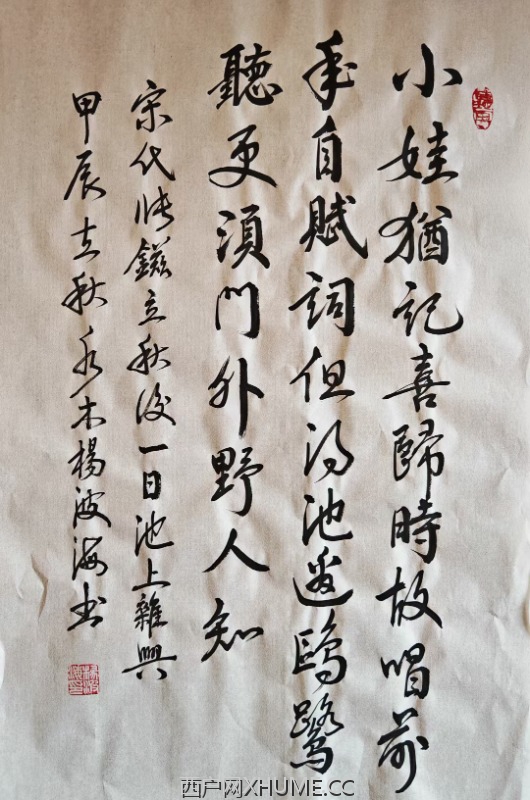 小娃猶記喜歸時故唱前
年自賦詞但得池邊鷗鷺
聽更須門外野人知
宋代張鎡立秋後一日池上雜興
甲辰立秋秀木楊波海书
西户网XHUME.CC